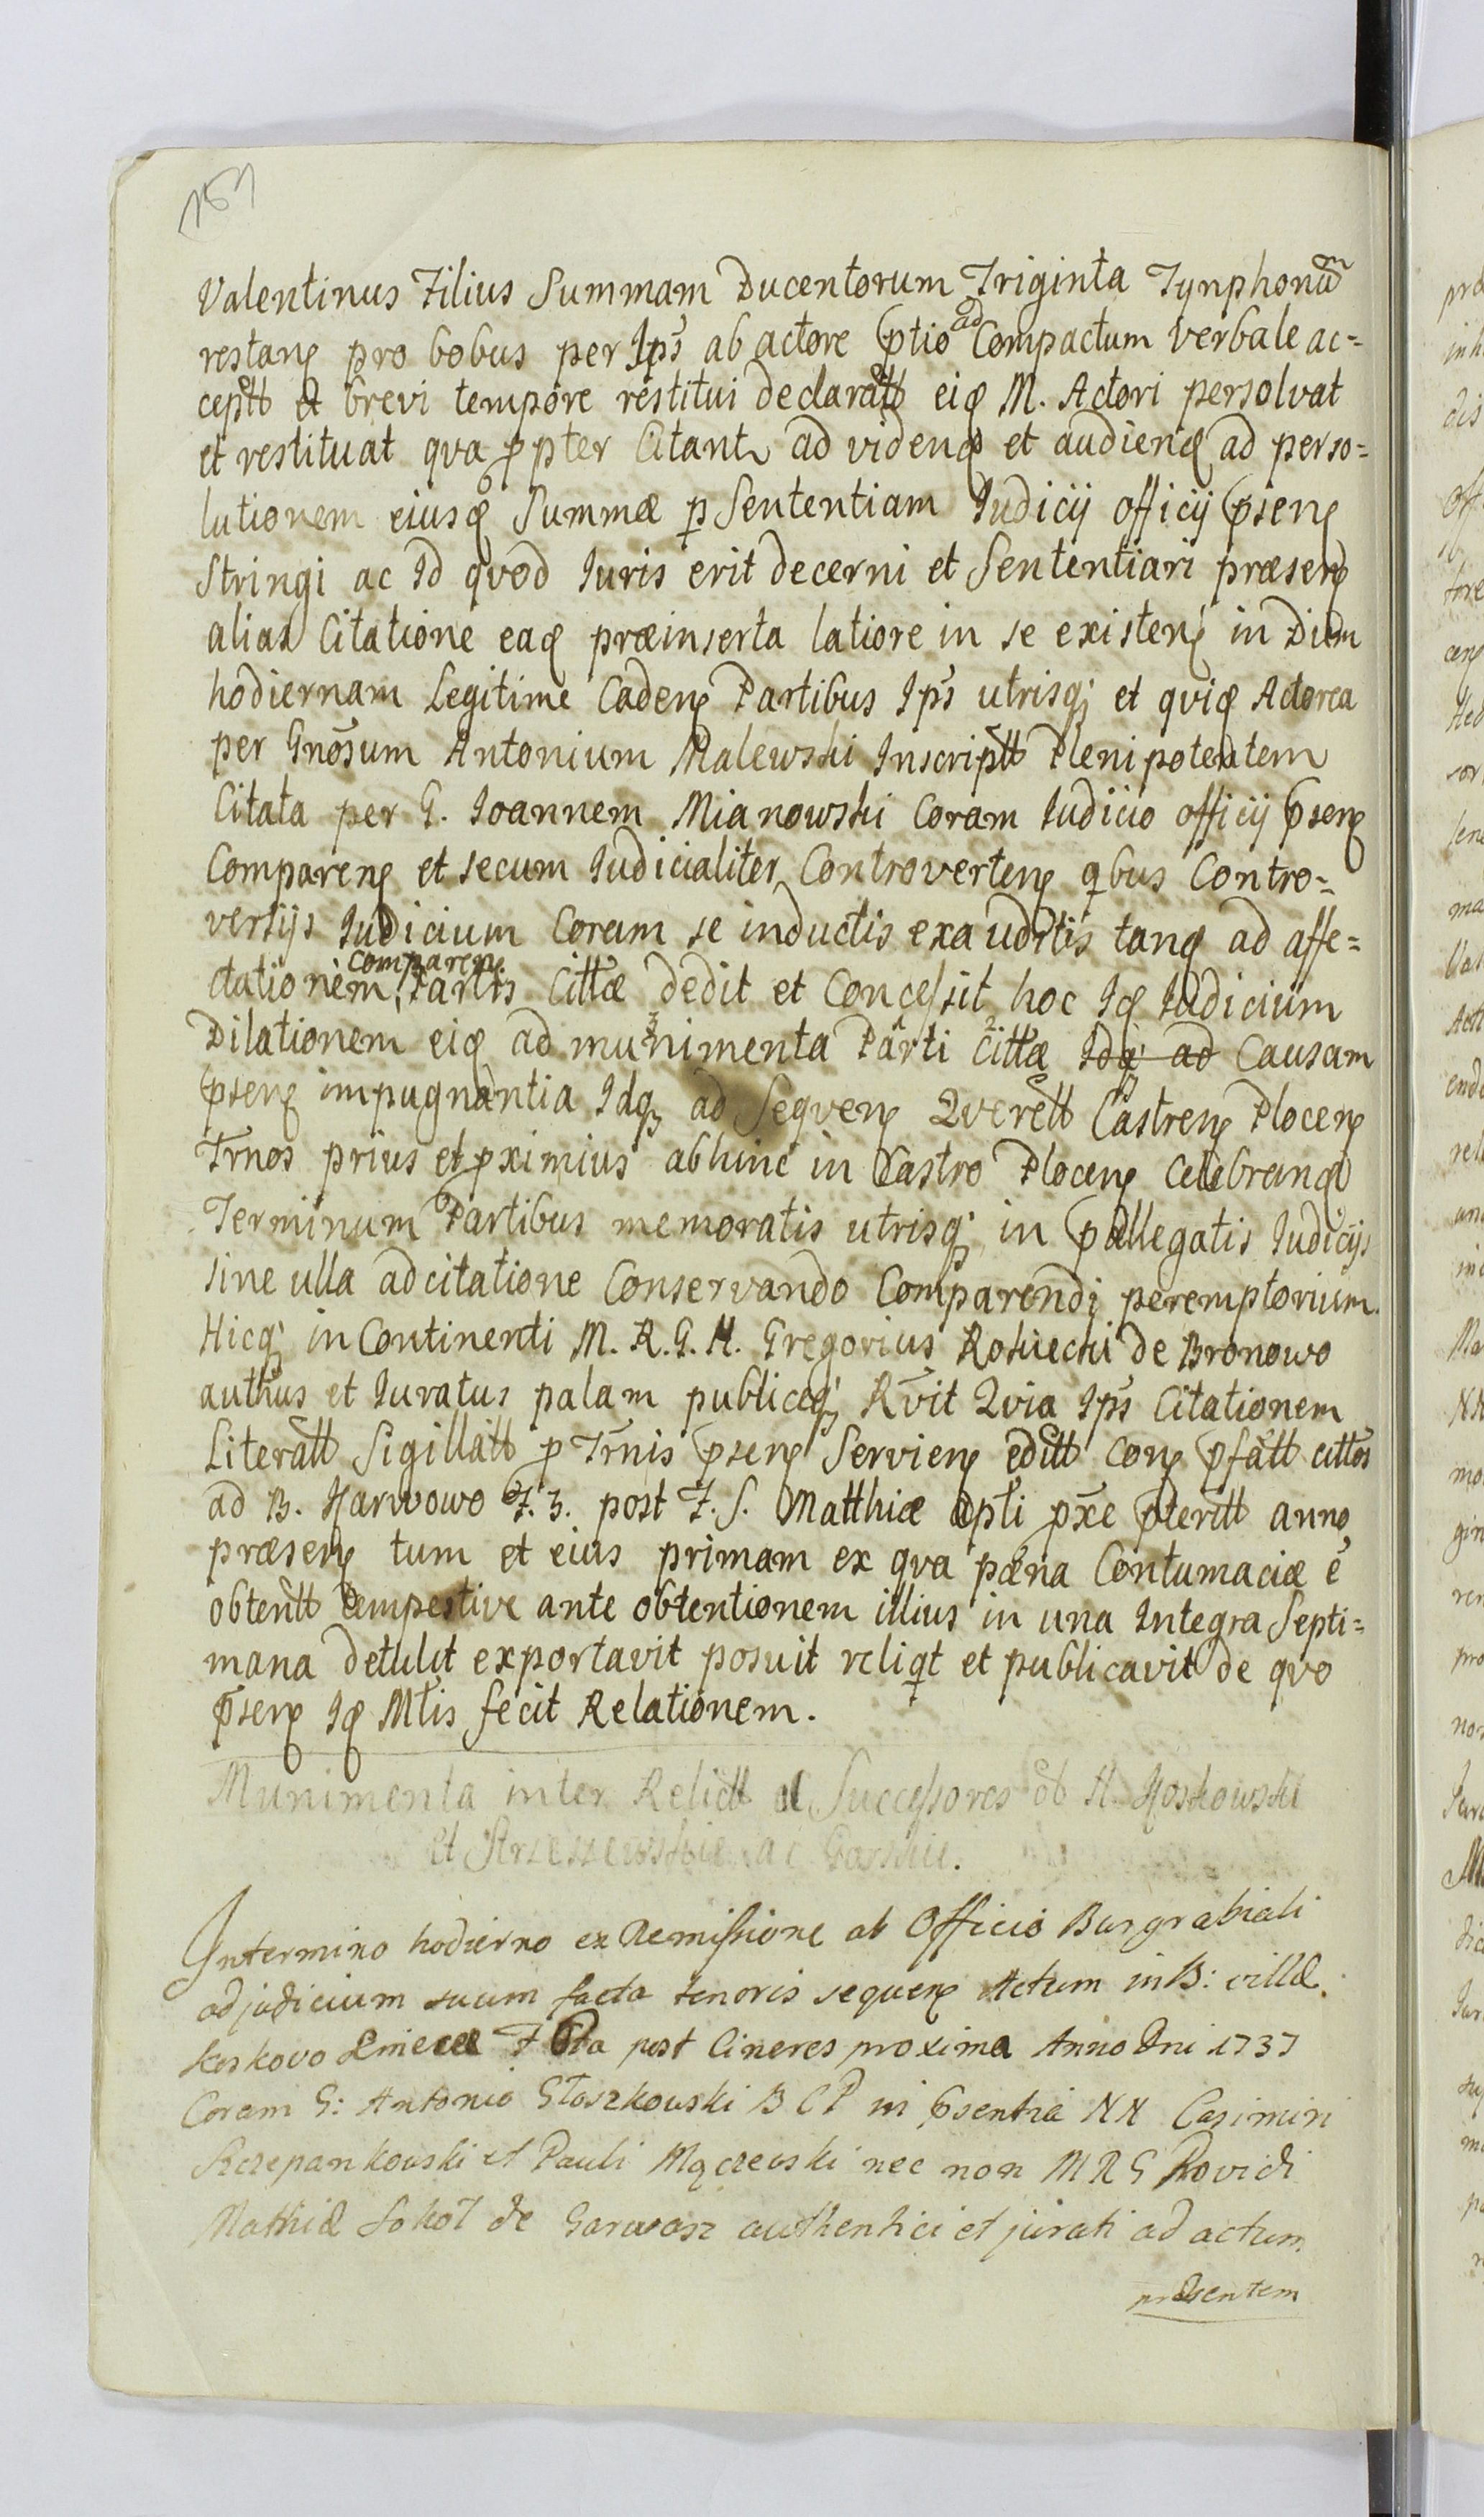 151
Valentinus Filius Summam Ducentorum Triginta Tynphonum
restanę pro bobus per Ips̃ ab actore p̃tio ad Compactum verbale ac=
ceptt et brevi tempore restitui declaratt eiq M. Actori persolvat
et restituat qva ppter Citant ad videnq et audienq ad perso=
lutionem eiusq Summæ p Sententiam Iudicij officij p̃senę
Stringi ac Id qvod Iuris erit decerni et Sententiari præsenę
alias Citatione eaq præinserta latiore in se existenę in Diem
hodiernam Legitime Cadenę Partibus Ips̃ utrisq; et qviq Actorea
per Gnõsum Antonium Malewski Inscriptt Plenipotentem
Citata per G. Ioannem Mianowski Coram Iudicio officij p̃senę
Comparenę et secum Iudicialiter Controvertenę qbus Contro=
versijs Iudicium Coram se inductis exauditis tanq ad affe=
ctationem comparenę Partis Cittæ dedit et Concessit hoc Iq Iudicium
Dilationem eiq ad munimenta Parti Cittæ Idq ad Causam
p̃senę impugnantia Idq; ad Seqvenę Qverett Castrenę Plocenę
Trnos prius et pximius abhinc in Castro Plocenę Celebranq
Terminum Partibus memoratis utrisq; in p̃allegatis Iudicijs
sine ulla adcitatione Conservando Comparendi peremptorium.
Hicq; in Continenti M. R. G. H. Gregorius Rokicki de Bronowo
authus et Iuratus palam publiceq; Rvit Qvia Ips̃ Citationem
Literatt Sigillatt p Trnis p̃senę Servienę editt Conę p̃fatt cittos
ad B. Karwowo F. 3. post F. S. Matthiæ Apti pxe p̃teritt anno
præsenę tum et eius primam ex qva pæna Contumaciæ e
obtentt tempestive ante obtentionem illius in una Integra Septi=
mana detulit exportavit posuit reliqt et publicavit de qvo
p̃senę Iq Mtis fecit Relationem.
Munimenta inter Relictt et Successores ob H. Koskowski
et Strzeszewskie ac Garskie.
Intermino hodierno ex Remissione ab Officio Burgrabiali
ad judicium suum facta tenoris sequenę Actum in B: villæ
Koskovo F post Cineres proxima Anno Dni 1737
Coram G: Antonio Głoszkowski B C P in p̃sentia NN Casimiri
Szczepankowski et Pauli Mączewski nec non M R G Providi
Mathiæ Sokoł de Garwarz authentici et jurati ad actum
præsentem